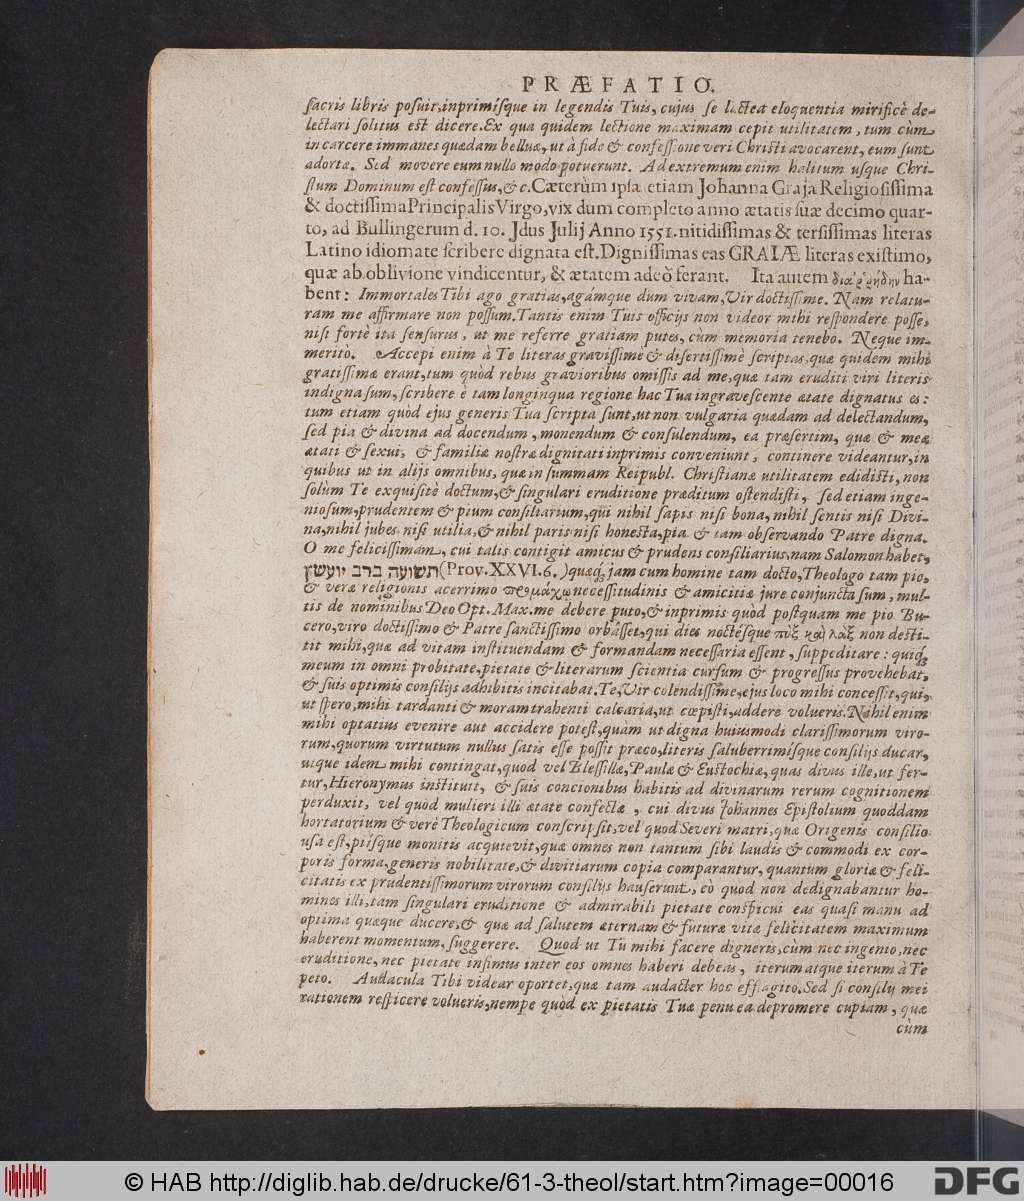 PRÆFATIO.
sacris libris posuit, inprimísque in legendis Tuis, cujus se lacteâ eloquentia mirificè de-
lectari solitus est dicere. Ex qua quidem lectione maximam cepit utilitatem, tum cùm
in carcere immanes quædam belluæ, ut à fide & confessione veri Christi avocarent, eum sunt
adortæ. Sed movere eum nullo modo potuerunt. Ad extremum enim halitum usque Chri-
stum Dominum est confessus, & c. Cæterùm ipsa etiam Johanna Graja Religiosissima
& doctissima Principalis Virgo, vix dum completo anno ætatis suæ decimo quar-
to, ad Bullingerum d. 10. Jdus Julij Anno 1551. nitidissimas & tersissimas literas
Latino idiomate scribere dignata est. Dignissimas eas GRAIÆ literas existimo,
quæ ab oblivione vindicentur, & ætatem adeò ferant. Ita autem διαῤῥήδην ha-
bent: Immortales Tibi ago gratias, agámque dum vivam, Vir doctissime. Nam relatu-
ram me affirmare non possum. Tantis enim Tuis officijs non videor mihi respondere posse,
nisi fortè ita sensurus, ut me referre gratiam putes, cùm memoria tenebo. Neque im-
meritò. Accepi enim à Te literas gravissimè & disertissimè scriptas, quæ quidem mihi
gratissimæ erant, tum quòd rebus gravioribus omissis ad me, quæ tam eruditi viri literis
indigna sum, scribere è tam longinqua regione hac Tua ingravescente ætate dignatus es:
tum etiam quòd ejus generis Tua scripta sunt, ut non vulgaria quædam ad delectandum,
sed pia & divina ad docendum, monendum & consulendum, ea præsertim, quæ & meæ
ætati & sexui, & familiæ nostræ dignitati inprimis conveniunt, continere videantur, in
quibus ut in alijs omnibus, quæ in summam Reipubl. Christianæ utilitatem edidisti, non
solùm Te exquisitè doctum, & singulari eruditione præditum ostendisti, sed etiam inge-
niosum, prudentem & pium consiliarium, qui nihil sapis nisi bona, nihil sentis nisi Divi-
na, nihil jubes nisi utilia, & nihil paris nisi honesta, pia & tam observando Patre digna.
O me felicissimam, cui talis contigit amicus & prudens consiliarius, nam Salomon habet,
תשועה ברב יועשץ (Prov. XXVI. 6.) quæq; jam cum homine tam docto, Theologo tam pio,
& veræ religionis acerrimo προμάχῳ necessitudinis & amicitiæ jure conjuncta sum, mul-
tis de nominibus Deo Opt. Max. me debere puto, & inprimis quòd postquam me pio Bu-
cero, viro doctissimo & Patre sanctissimo orbâsset, qui dies noctésque πὺξ καὶ λὰξ non desti-
tit mihi, quæ ad vitam instituendam & formandam necessaria essent, suppeditare: quiq;
meum in omni probitate, pietate & literarum scientia cursum & progressus provehebat,
& suis optimis consilijs adhibitis incitabat. Te, Vir colendissime, ejus loco mihi concessit, qui,
ut spero, mihi tardanti & moram trahenti calcaria, ut cœpisti, addere volueris. Nihil enim
mihi optatius evenire aut accidere potest, quàm ut digna huiusmodi clarissimorum viro-
rum, quorum virtutum nullus satis esse possit præco, literis saluberrimísque consilijs ducar,
utque idem mihi contingat, quod vel Blessillæ, Paulæ & Eustochiæ, quas divus ille, ut fer-
tur, Hieronymus instituit, & suis concionibus habitis ad divinarum rerum cognitionem
perduxit, vel quòd mulieri illi ætate confectæ, cui divus Johannes Epistolium quoddam
hortatorium & verè Theologicum conscripsit, vel quod Severi matri, quæ Origenis consilio
usa est, piísque monitis acquievit, quæ omnes non tantum sibi laudis & commodi ex cor-
poris forma, generis nobilitate, & divitiarum copia comparantur, quantum gloriæ & feli-
citatis ex prudentissimorum virorum consilijs hauserunt, eò quod non dedignabantur ho-
mines illi, tam singulari eruditione & admirabili pietate conspicui eas quasi manu ad
optima quæque ducere, & quæ ad salutem æternam & futuræ vitæ felicitatem maximum
haberent momentum, suggerere. Quod ut Tu mihi facere digneris, cùm nec ingenio, nec
eruditione, nec pietate infimus inter eos omnes haberi debeas, iterum atque iterum à Te
peto. Audacula Tibi videar oportet, quæ tam audacter hoc efflagito. Sed si consilij mei
rationem respicere volueris, nempe quòd ex pietatis Tuæ penu ea depromere cupiam, quæ
cùm
© HAB http://diglib.hab.de/drucke/61-3-theol/start.htm?image=00016
DFG